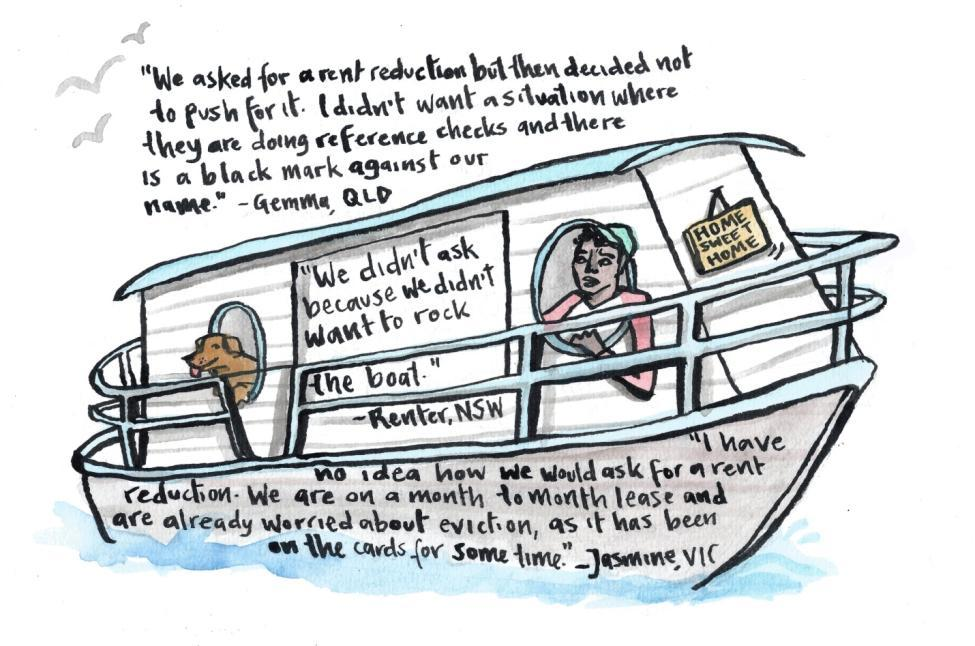 "We asked for a rent reduction but then decided not
to push for it. I didn't want a situation where
they are doing reference checks and there
is a black mark against our
name." - Gemma, QLD
HOME
SWEET
HOME
"We didn't ask
because we didn't
want to rock
the boat."
- Renter, NSW
"I have
no idea how we would ask for a rent
reduction. We are on a month to month lease and
are already worried about eviction, as it has been
on the cards for some time." - Jasmine, VIC